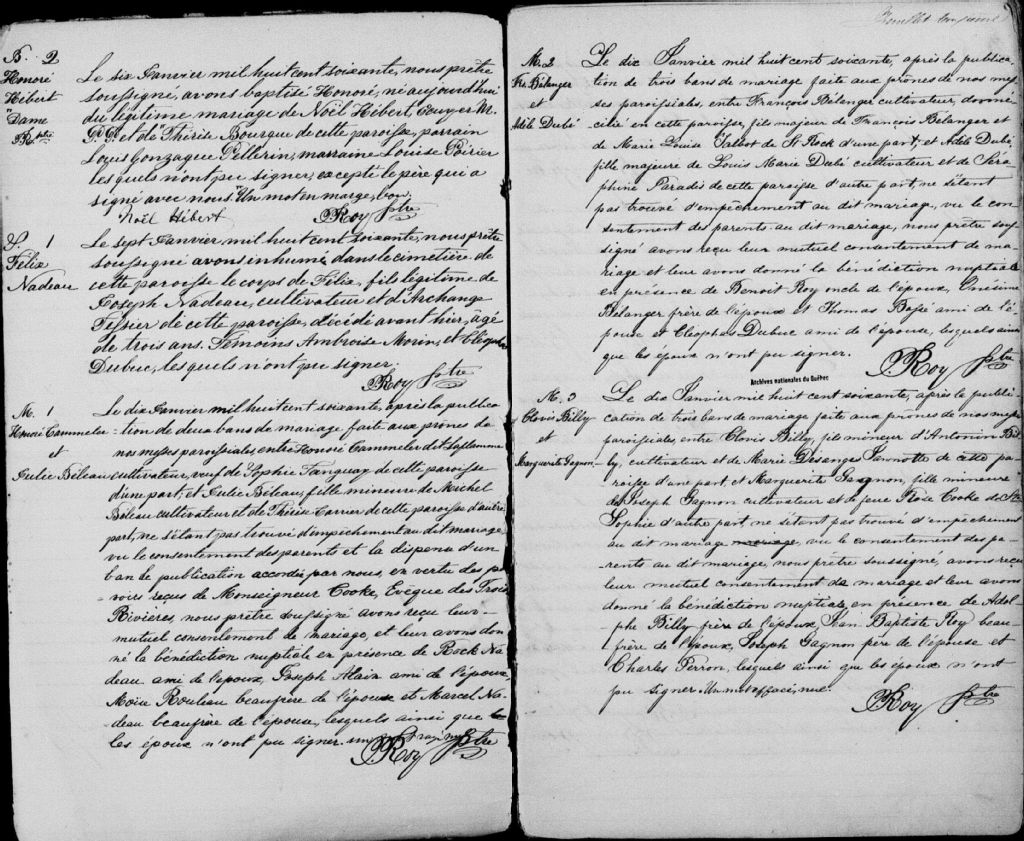 B. 2
Honoré
Hébert
"Dame
P.R. ptre
Le six Janvier mil huit cent soixante, nous prêtre
soussigné, avons baptisé Honoré, né aujourd'hui
du légitime mariage de Noël Hébert, Ecuyer M.
P. P. et de Thérèse Bourque de cette paroisse, parrain
Louis Gonzague Pellerin, marraine Louise Poirier
lesquels n'ont pu signer, excepté le père qui a
signé avec nous. Un mot en marge, bon.
Noël Hébert PRoy Ptre
S. 1
Félix
Nadeau
Le sept Janvier mil huit cent soixante, nous prêtre
soussigné avons inhumé dans le cimetière de
cette paroisse le corps de Félix, fils légitime de
Joseph Nadeau, cultivateur et d'Archange
Tessier de cette paroisse, décédé avant hier, âgé
de trois ans. Témoins Ambroise Morin, et Cléophe
Dubuc, lesquels n'ont pu signer.
PRoy Ptre
M. 1
Honoré Cammeler
et
Julie Béleau
Le dix Janvier mil huit cent soixante, après la publica-
-tion de deux bans de mariage faite aux prônes de
nos messes paroissiales entre Honoré Cammeler dit
cultivateur, veuf de Sophie Tanguay de cette paroisse
d'une part, et Julie Béleau, fille mineure de Michel
Béleau cultivateur et de Thérèse Carrier de cette paroisse d'autre
part, ne s'étant pas trouvé d'empêchement au dit mariage
vu le consentement des parents et la dispense d'un
ban de publication accordée par nous, en vertu des pou
voirs reçus de Monseigneur Cooke, Evêque des Trois
Rivières, nous prêtre soussigné avons reçu leur
mutuel consentement de mariage, et leur avons don
né la bénédiction nuptiale en présence de Rock Na
deau ami de l'époux, Joseph Alain ami de l'époux,
Moïse Rouleau beaufrère de l'épouse et Marcel Na-
deau beaufrère de l'épouse, lesquels ainsi que
les époux n'ont pu signer. un mot rayé nul
PRoy Ptre
Feuillet
M. 2
Frs. Bélanger
et
Adèle Dubé
Le dix Janvier mil huit cent soixante, après la publica-
tion de trois bans de mariage faite aux prônes de nos mes
ses paroissiales, entre François Bélanger cultivateur, domi
cilié en cette paroisse, fils majeur de François Bélanger et
de Marie Louise Talbot de St Rock d'une part, et Adèle Dubé,
fille majeure de Louis Marie Dubé cultivateur et de Séra
phine Paradis de cette paroisse d'autre part, ne s'étant
pas trouvé d'empêchement au dit mariage, vu le con-
sentement des parents au dit mariage, nous prêtre sous-
signé avons reçu leur mutuel consentement de ma-
riage et leur avons donné la bénédiction nuptiale
en présence de Benoit Roy oncle de l'époux, Onésime
Bélanger frère de l'époux et Thomas ami de l'é-
pouse et Cléophas Dubuc ami de l'épouse, lesquels ainsi
que les époux n'ont pu signer.
PRoy Ptre
Archives nationales du Québec
M. 3
Clovis Billy
et
Marguerite Gagnon
Le dix Janvier mil huit cent soixante, après la publi-
cation de trois bans de mariage faite aux prônes de nos messes
paroissiales entre Clovis Billy, fils mineur d'Antonin Bil-
ly, cultivateur et de Marie Desanges Jannotte de cette pa-
roisse d'une part, et Marguerite Gagnon, fille mineure
de Joseph Gagnon cultivateur et de feue Rose Cooke de Ste
Sophie d'autre part, ne s'étant pas trouvé d'empêchement
au dit mariage mariage, vu le consentement des pa-
rents au dit mariage, nous prêtre soussigné, avons reçu
leur mutuel consentement de mariage et leur avons
donné la bénédiction nuptiale, en présence de Adol-
phe Billy frère de l'époux, Jean Baptiste Roy beau-
frère de l'époux, Joseph Gagnon père de l'épouse et
Charles Perron, lesquels ainsi que les époux n'ont
pu signer. Un mot effacé, nul.
PRoy Ptre